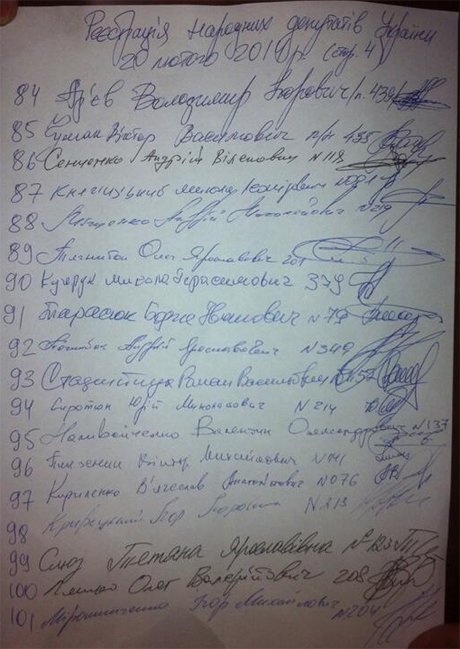 Реєстрація народних депутатів України
20 лютого 2014 р. (стр. 4
84 Ар'єв Володимир Ігорович п. 439
85 Чумак Віктор Васильович п/н 435
86 Сенченко Андрій Віленович N 118
87 Княжицький Микола
88 Андрій
89 Тягнибок Олег Ярославович 201
90 Кучерук Микола Герасимович 379
91 Тарасюк Борис Іванович N 79
92 Андрій Ярославович N 349
93 Роман Васильович
94 Сиротюк Юрій Миколайович N 214
95 Наливайченко Валентин Олександрович N 137
96 Пинзеник Віктор Михайлович N 141
97 Кириленко В'ячеслав Анатолійович N 076
98 Ігор N 213
99 Слюз Тетяна Ярославівна N
100 Ляшко Олег Валерійович 208
101 Мірошниченко Ігор Михайлович N 204